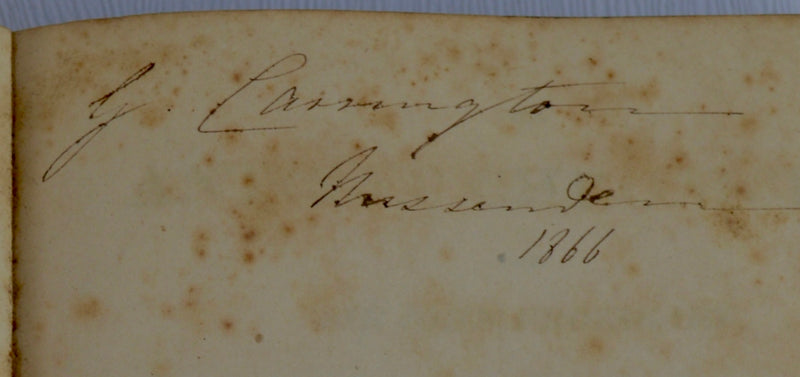 G. Carrington
Missenden
1866